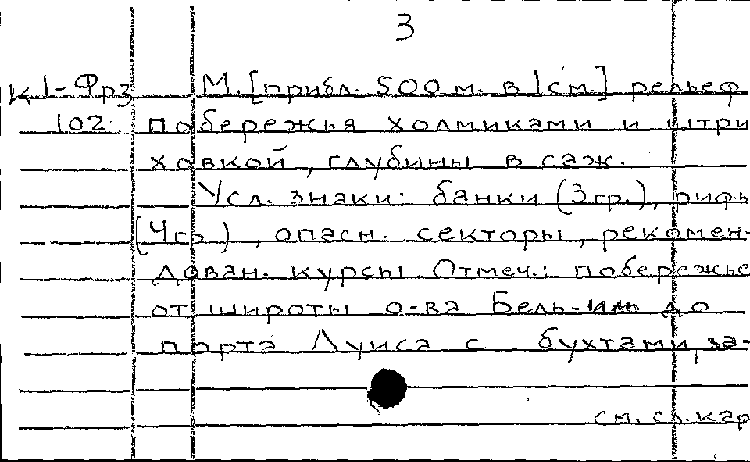 3
К1-Фрз М. [прибл. 500 м. в 1 см.] рельеф
102. побережья холмиками и штри
ховкой, глубины в саж.
Усл. знаки: банки (3 гр.), рифы
(4 гр.), опасн. секторы, рекомен-
дован. курсы. Отмеч.: побережье
от широты о-ва Бель-Иль до
порта Луиса с бухтами, за-
см. сл. кар